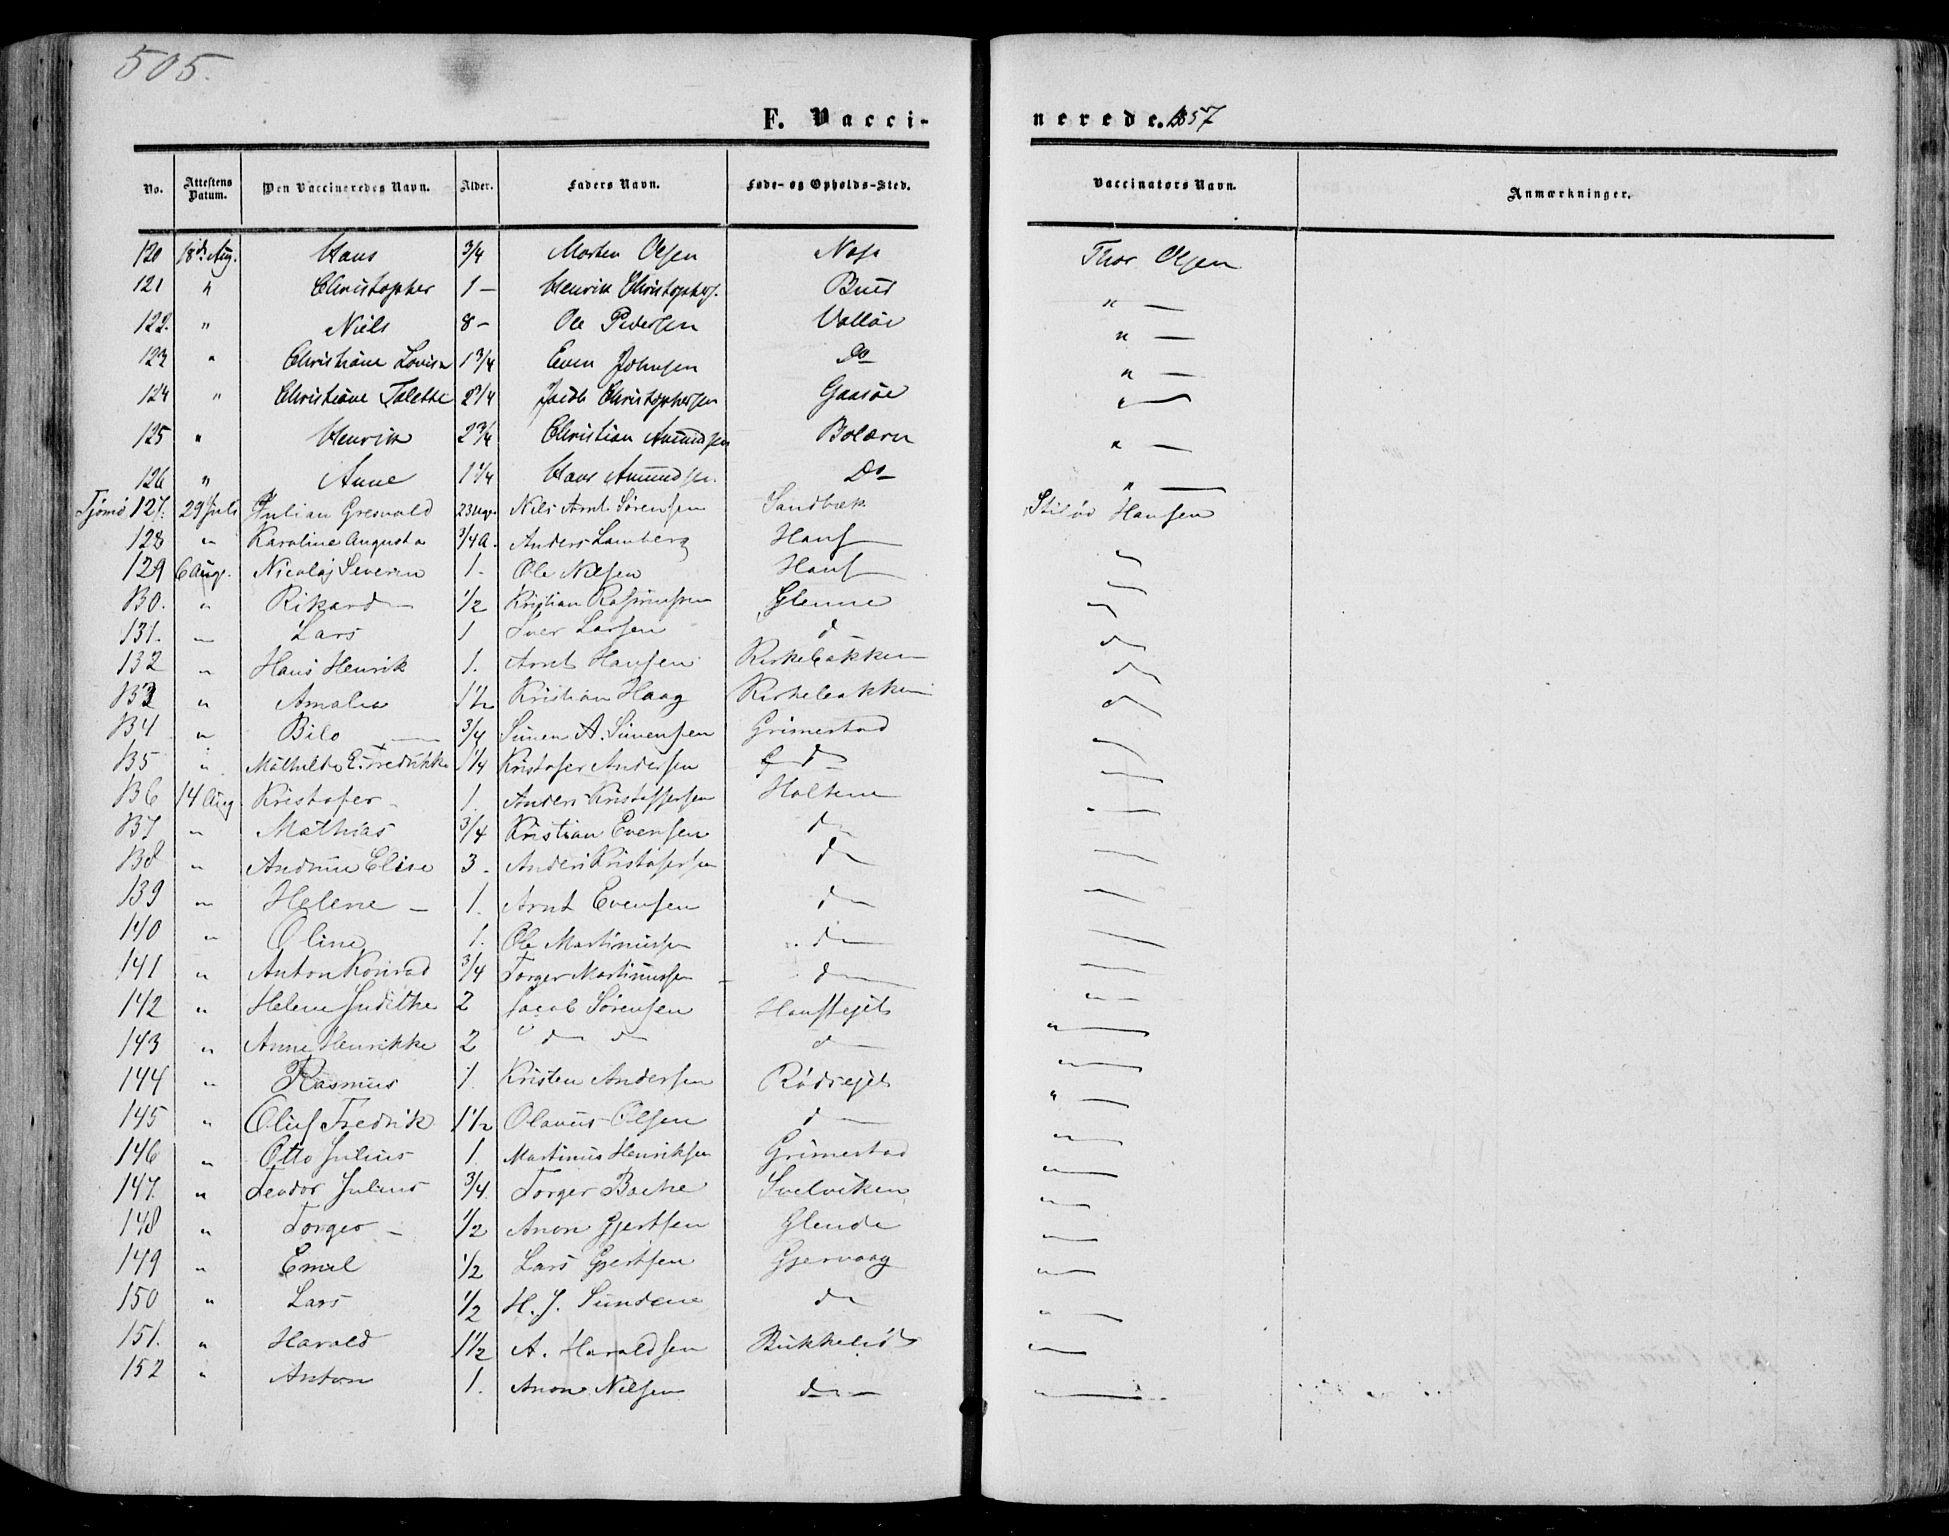 505.
F. Vaccinerede. 1857
No. Attestens Datum. Den Vaccineredes Navn. Alder. Faders Navn. Føde- og Opholds-Sted. Vaccinators Navn. Anmærkninger.
120 18de Aug. Hans 3/4 Morten Olsen Thor Olsen
121 " Christopher 1 - Henrik Christophers. " —
122. " Niels 8 - Ole Pedersen Valløe " —
123 " Christiane Lovise 1 3/4 Even Johnsen Do " —
124 " Christiane Talette 2 1/4 Jacob Christophersen Gaasøe " —
125 " Henrik 2 3/4 Christian Amundsen Bolærn " —
126 " Anne 1 1/4 Hans Amundsen. Do " —
Tjømø 127. 29 Juli Julian Greswald 23 Ug. Nils Arnt Sørensen Sandbæk Hansen
128 " Karoline Augusta 3/4 A. Anders Lamberg Hauf "
129 6 Aug. Nicolaj Severin 1 - Ole Nilsen Hauf "
130. " Rikard — 1/2 Kristian Rasmussen Glenne "
131. " Lars 1 Iver Larsen d d
132 " Hans Henrik 1. Arnt Hansen Kirkebakken d
133 " Amalia 1 1/2 Kristian Haag Kirkebakken d
134 " Bilo — 3/4 Simen A. Simensen Grimestad "
135 " Mathilde E. Fredrikke 1 1/4 Kristofer Andersen d "
136 14 Aug Kristofer - 1. Anders Kristoffersen Holtene "
137 " Mathias 3/4 Kristian Evensen d "
138 " Andrine Elise 3. Anders Kristofersen d "
139 " Helene - 1. Arnt Evensen d "
140 " Oline 1. Ole Martinussen d "
141 " Anton Konrad 3/4 Torger Martinussen d "
142 " Helene Judithe 2 Jacob Sørensen "
143 " Anne Henrikke 2 " d d d "
144 " Rasmus 1. Kristen Andersen Rødsejet "
145 " Oluf Fredrik 1 1/2 Olavus Olsen d "
146 " Otto Julius 1. Martinus Henriksen Grimestad "
147. " Teodor Julius 3/4. Torger Bache Svelviken "
148 " Torger - 1/2 Anon Gjertsen Glende "
149 " Emil 1/2 Lars Gjertsen Gjervaag "
150 " Lars 1/2 H. J. Sundene d "
151. " Harald 1 1/2 A. Haraldsen "
152 " Anton 1. Anon Nilsen d "